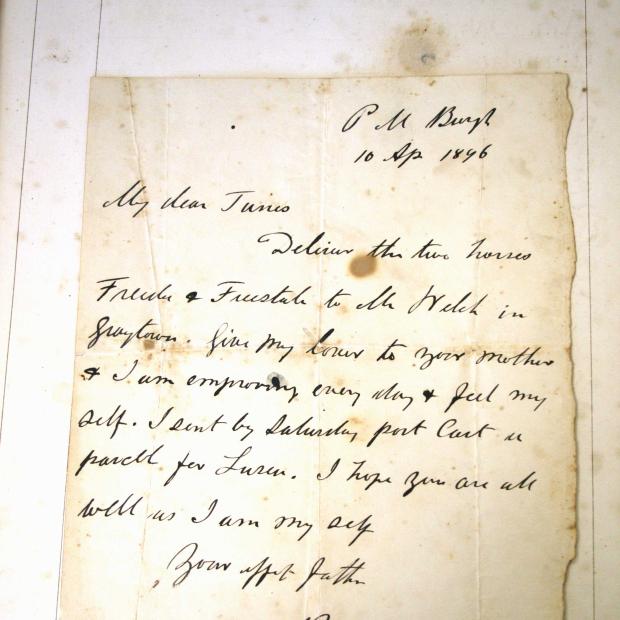 P M Burgh
10 Ap 1896
My dear
Deliver the two horses
Freida & Freestate to Mr Welch in
Greytown. Give my lover to your mother
& I am emproving every day & feel my
self. I sent by Saturday post Cart a
parcell for. I hope you are all
well as I am my self
Your affet father